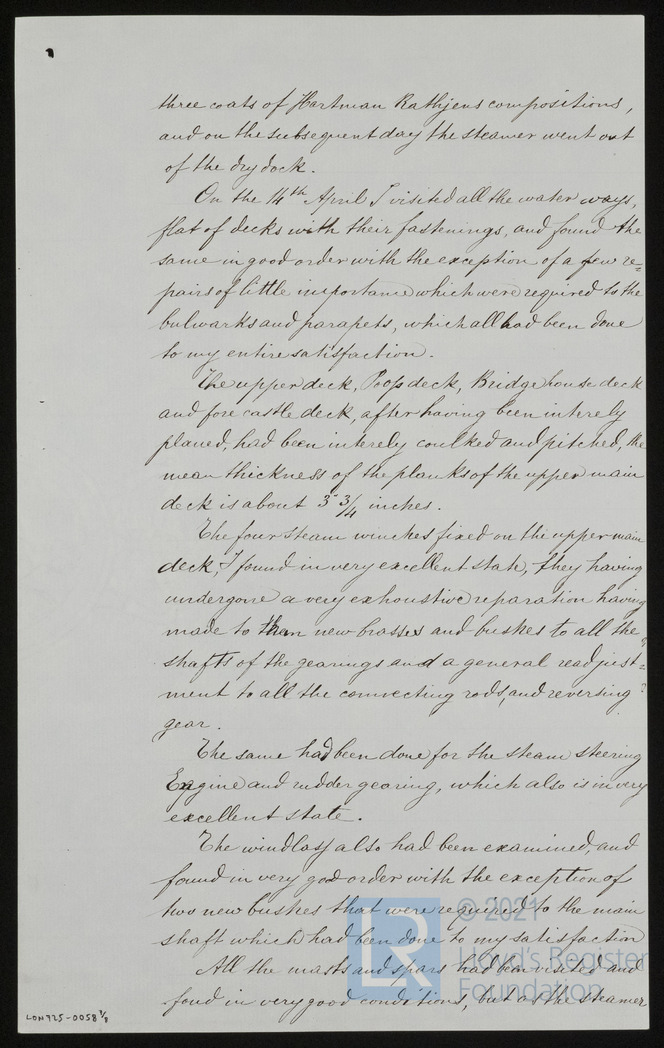 three coats of Hartman Rathjens compositions,
and on the subsequent day the steamer went out
of the dry dock.
On the 14th April I visited all the water ways,
flat of decks with their fastenings, and found the
same in good order with the exception of a few re=
pairs of little importance which were required to the
bulwarks and parapets, which all had been done
to my entire satisfaction.
The upper deck, Poop deck, Bridge house deck
and fore castle deck, after having been interely
planed, had been interely coulked and pitched, the
mean thickness of the planks of the upper main
deck is about 3" 3/4 inches.
The four steam winches fixed on the upper main
deck, I found in very excellent state, they having
undergone a very exhoustive reparation having
made to them new brasses and bushes to all the
shafts of the gearings and a general readjust=
ment to all the connecting rods, and reversing
gear.
The same had been done for the steam steering
Engine and rudder gearing, which also is in very
excellent state.
The windlass also had been examined, and
found in very good order with the exception of
two new bushes that were required to the main
shaft which had been done to my satisfaction
All the masts and spars had been visited and
foud in very good conditions, but as the steamer
LON725-0058 7/8
LR
© 2021
Lloyd's Register
Foundation